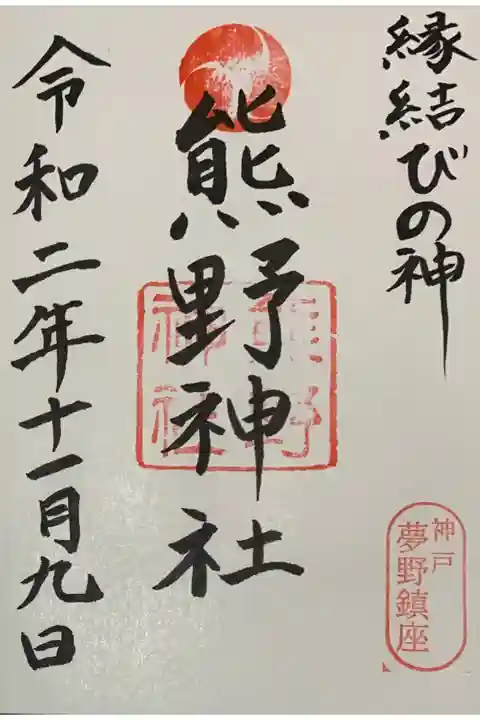 縁結びの神
神戸
夢野鎮座
熊野神社
熊野
神社
令和二年十一月九日